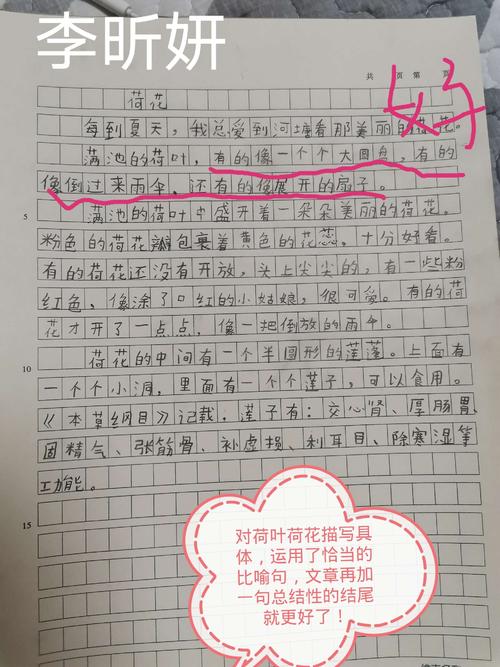 李昕妍
共 页 第 页
好
荷花
每到夏天，我总爱到河塘看那美丽的荷花。
满池的荷叶，有的像一个个大圆盘，有的
像倒过来雨伞，还有的像展开的扇子。
5
满池的荷叶中盛开着一朵朵美丽的荷花。
粉色的荷花瓣包裹着黄色的花蕊，十分好看。
有的荷花还没有开放，头上尖尖的，有一些粉
红色，像涂了口红的小姑娘，很可爱。有的荷
花才开了一点点，像一把倒放的雨伞。
10
荷花的中间有一个半圆形的莲蓬。上面有
一个个小洞，里面有一个个莲子，可以食用。
《本草纲目》记载：莲子有：交心肾、厚肠胃、
固精气、强筋骨、补虚损、利耳目、除寒湿等
功能。
15
对荷叶荷花描写具
体，运用了恰当的
比喻句，文章再加
一句总结性的结尾
就更好了！